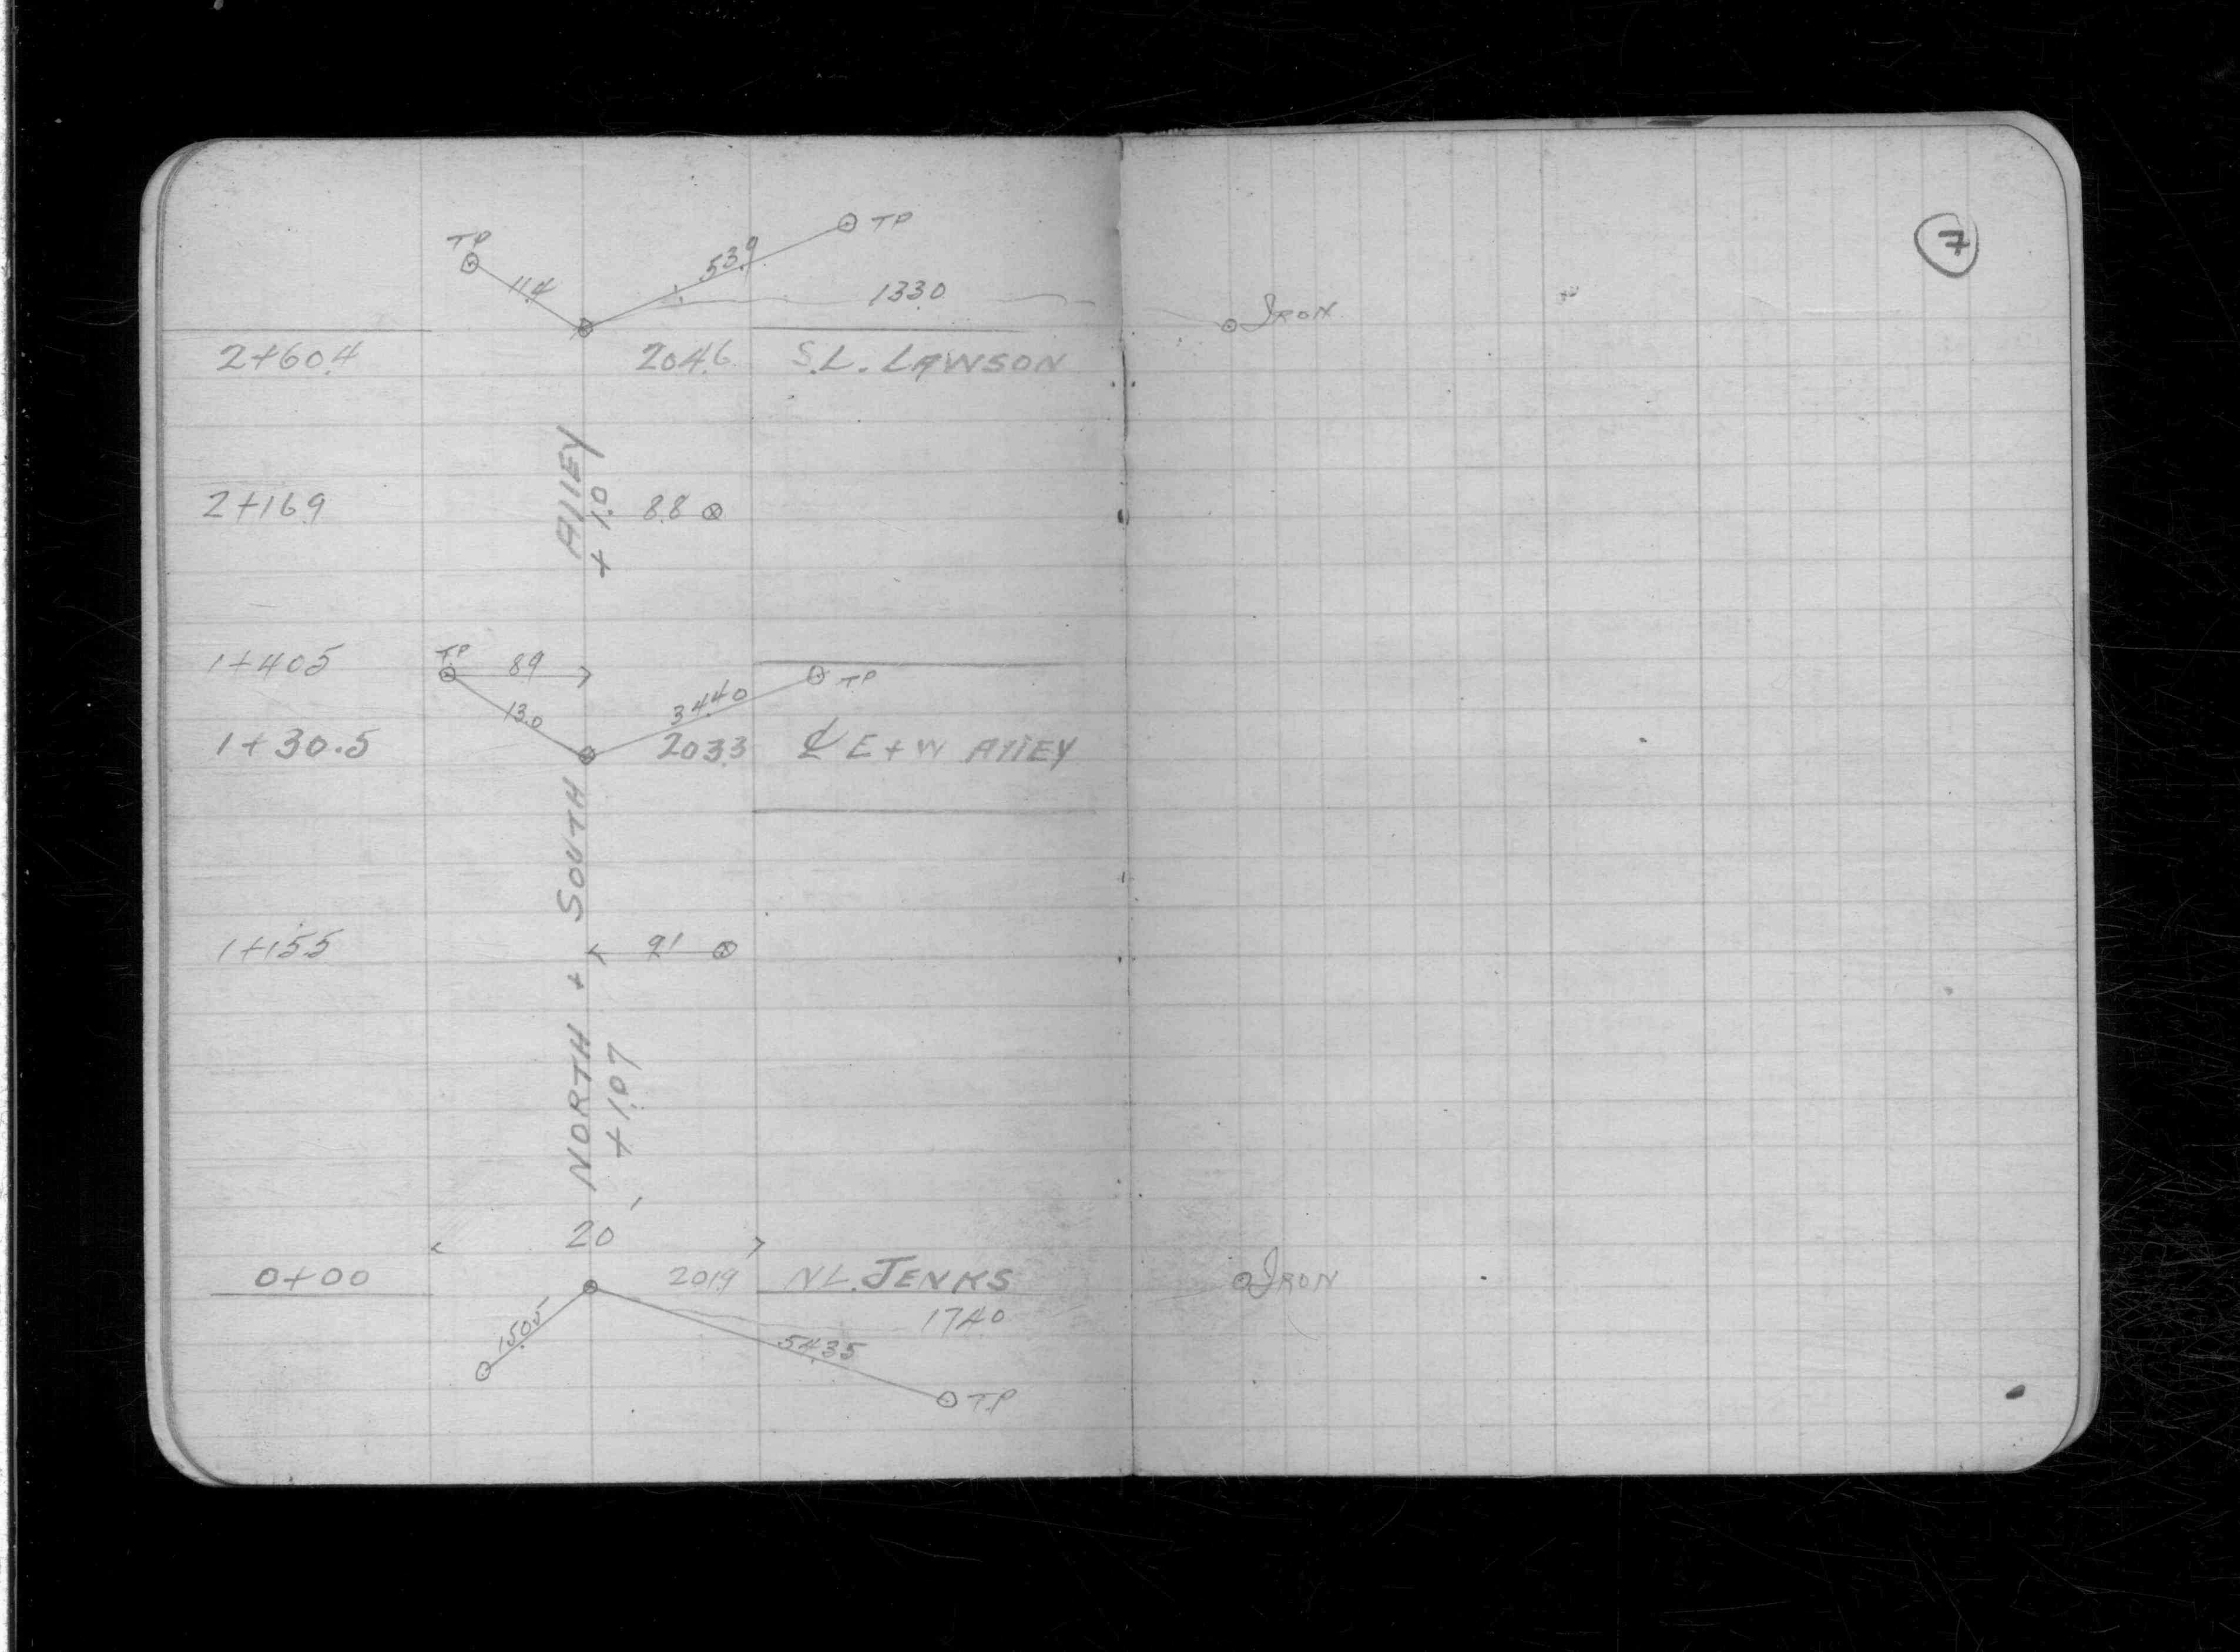 7
TP
TP
53.9
11.4
133.0
IRON
2+60.4
204.6
S.L. LAWSON
ALLEY
+1.0
2+16.9
8.8
1+40.5
TP
8.9
TP
13.0
34.40
1+30.5
203.3
℄ E + W ALLEY
NORTH + SOUTH
1+15.5
9.1
+1.07
20'
0+00
201.9
N.L. JENKS
IRON
174.0
15.05
54.35
T.P